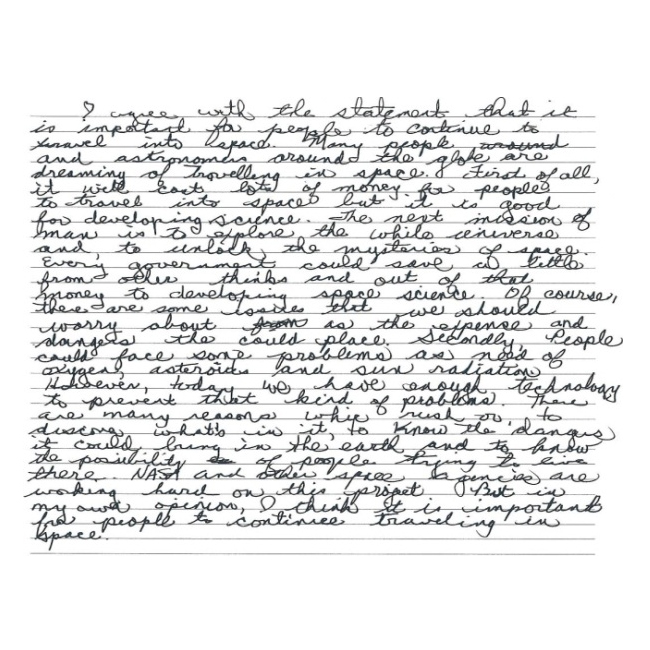 I agree with the statement that it
is important for people to continue to
travel into space. Many people around
and astronomers around the globe are
dreaming of travelling in space. First of all,
it will cost lots of money for people
to travel into space but it is good
for developing science. The next mission of
man is to explore the while universe
and, to unlock the mysteries of space.
Every government could save a little
from other thinks and out of that
money to developing space science. Of course,
there are some issues that we should
worry about from as the expense and
dangers the could place. Secondly, People
could face some problems as need of
oxygen, asteroids and sun radiation
However, today we have enough technology
to prevent that kind of problems. There
are many reasons whic rush or to
discove what's in it, to know the danges
it could bring in the earth and to know
the posiibility of people trying to live
there. NASA and other space agencies are
working hard on this project But in
my own opinion, I think it is important
for people to continue traveling in
space.